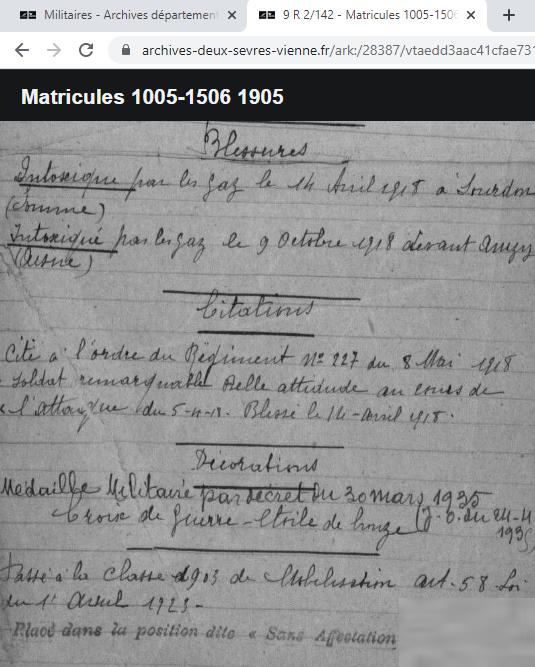 Militaires - Archives département
9 R 2/142 - Matricules 1005-1506
archives-deux-sevres-vienne.fr/ark:/28387/vtaedd3aac41cfae731
Matricules 1005-1506 1905
Blessures
Intoxiqué par les gaz le 14 Avril 1918 à Sourdon
(Somme)
Intoxiqué par les gaz le 9 Octobre 1918 devant
(Aisne)
Citations
Cité à l'ordre du Régiment N° 227 du 8 Mai 1918
Soldat remarquable Belle attidude au cours de
l'attaque du 5-4-18. Blessé le 14-avril 1918.
Décorations
Médaille Militaire par décret du 30 mars 1935
Croix de Guerre - Etoile de bronze (J. O. du 24-4
1935)
Passé à la classe 1903 de Mobilisation art. 58 Loi
du 1er Avril 1923-
Placé dans la position dite « Sans Affectation